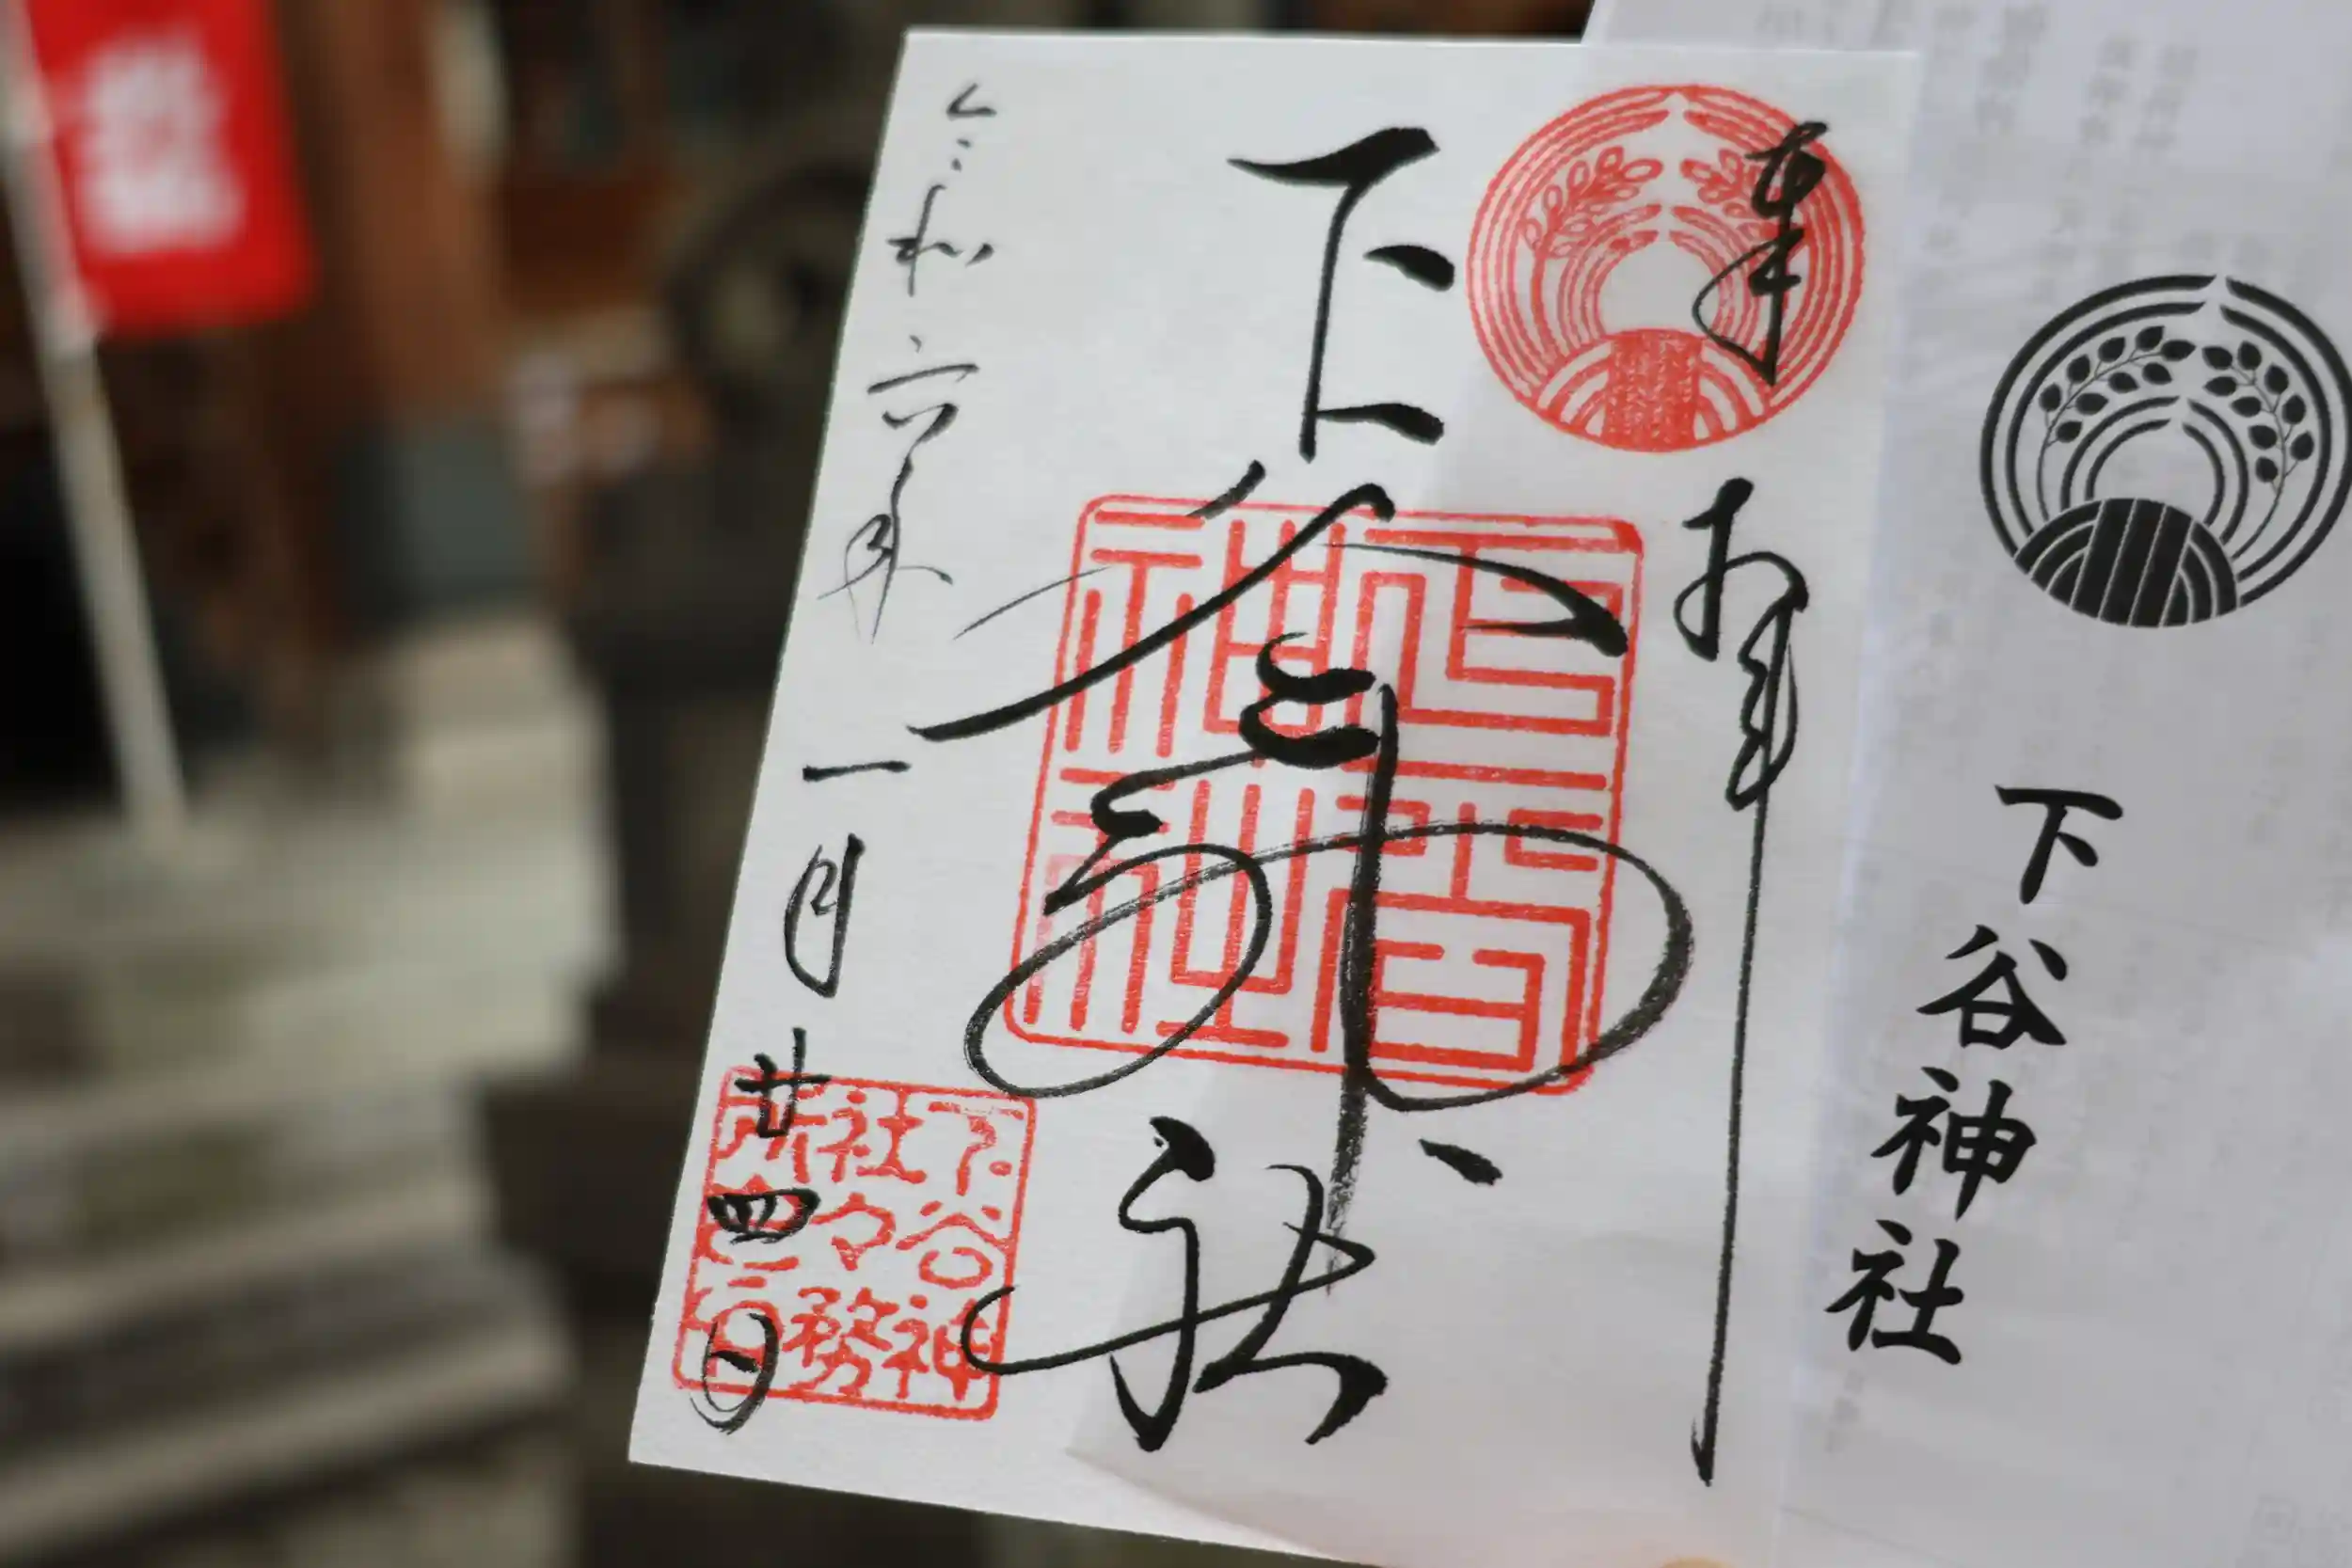 下谷神社
奉拝
下谷神社
下谷神社
令和六年一月廿四日
下谷神
社々務
所之印